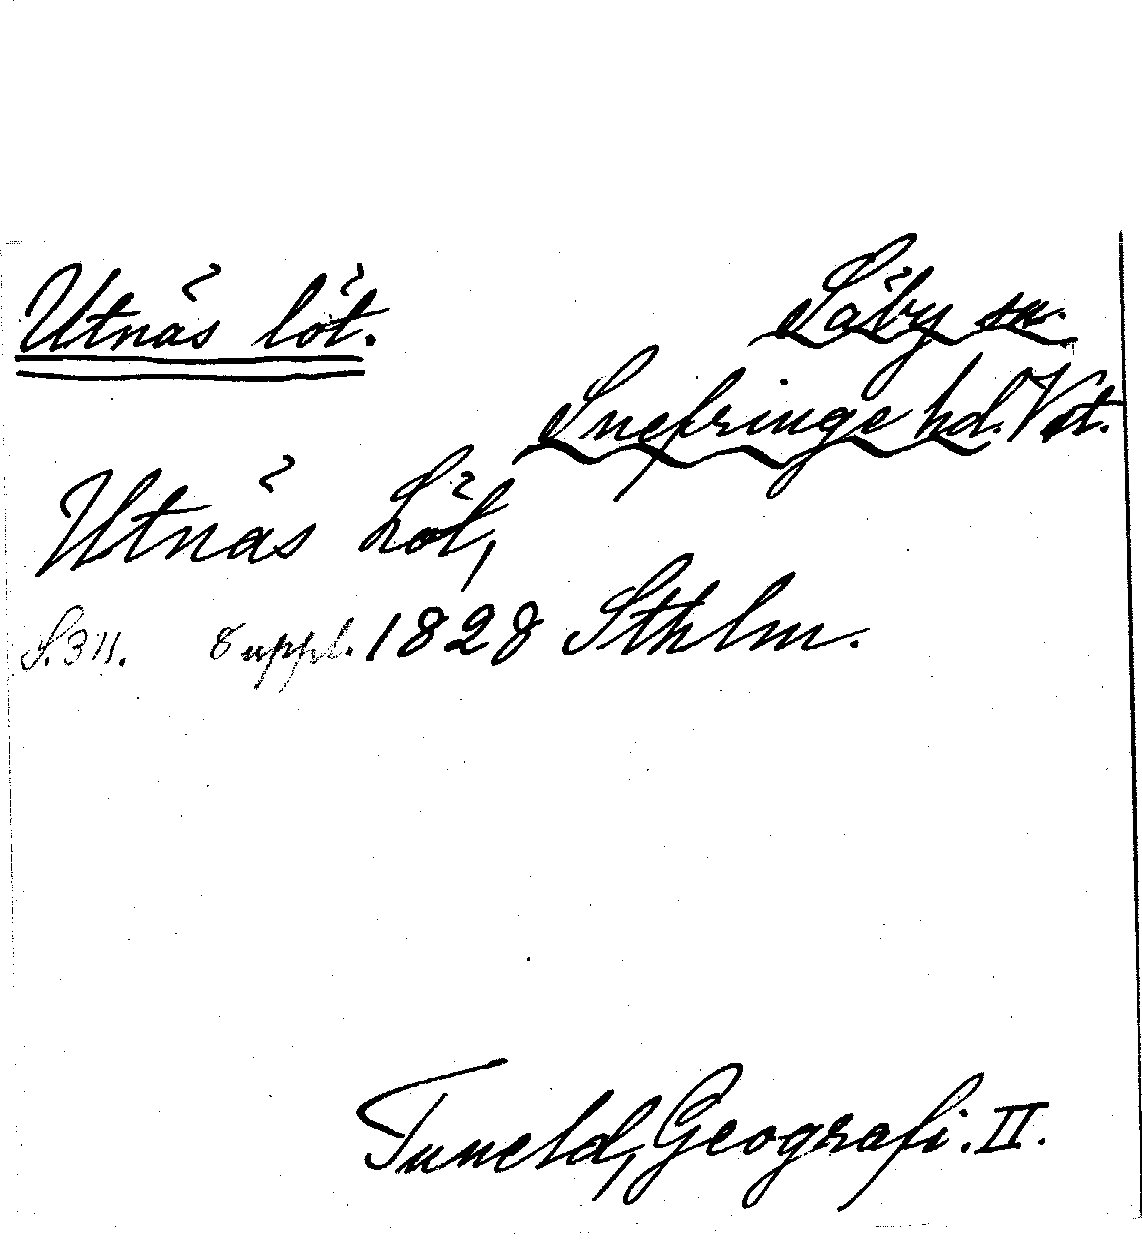 Utnäs löt. Säby sn.
Snefringe hd. Vst.
Utnäs Löt,
S. 311. Suppl. 1828 Sthlm.
Tuneld, Geografi. II.